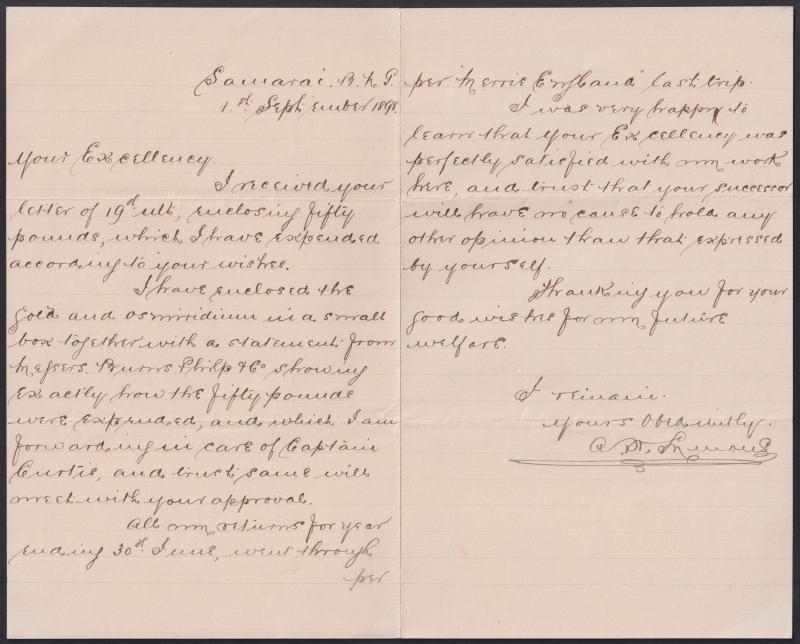 Samarai. B. N. G.
1st. September 1898.
Your Excellency.
I received your
letter of 19th ult, enclosing fifty
pounds, which I have expended
according to your wishes.
I have enclosed the
gold and osmiridium in a small
box together with a statement from
Messers. Burns Philp & Co showing
exactly how the fifty pounds
were expended, and which I am
forwarding in care of Captain
Curtis, and trust same will
meet with your approval.
All my returns for year
ending 30th June, went through
per
per "Merrie England" last trip.
I was very happy to
learn that your Excellency was
perfectly satisfied with my work
here, and trust that your successor
will have no cause to hold any
other opinion than that expressed
by yourself.
Thanking you for your
good wishes for my future
welfare.
I remain.
Yours Obediently.